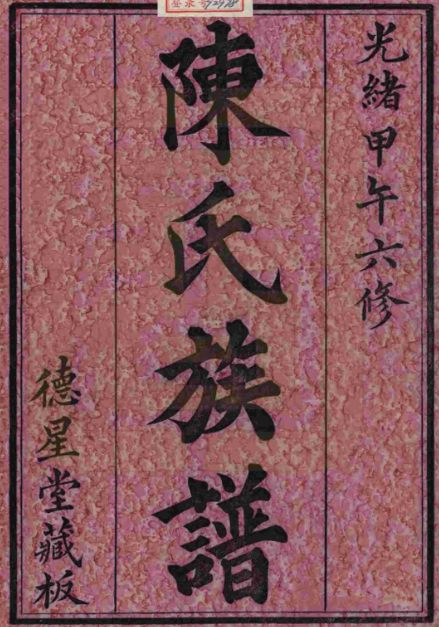 光緒甲午六修
陳氏族譜
德星堂藏板